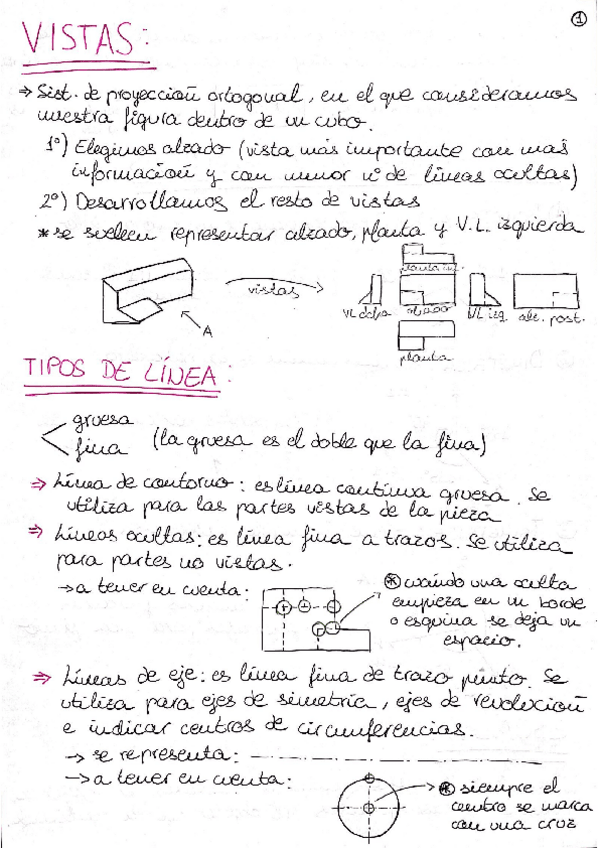 1
VISTAS:
→ Sist. de proyección ortogonal, en el que consideramos
nuestra figura dentro de un cubo.
1º) Elegimos alzado (vista más importante con más
información y con menor nº de líneas ocultas)
2º) Desarrollamos el resto de vistas
* se suelen representar alzado, planta y V.L. izquierda
vistas
A
planta inf.
VL dcha
alzado
VL izq
alz. post.
planta
TIPOS DE LÍNEA:
gruesa
fina (la gruesa es el doble que la fina)
⇒ Línea de contorno: es línea continua gruesa. Se
utiliza para las partes vistas de la pieza
⇒ Líneas ocultas: es línea fina a trazos. Se utiliza
para partes no vistas.
→ a tener en cuenta:
* cuando una oculta
empieza en un borde
o esquina se deja un
espacio.
⇒ Líneas de eje: es línea fina de trazo punto. Se
utiliza para ejes de simetría, ejes de revolución
e indicar centros de circunferencias.
→ se representa:
→ a tener en cuenta:
* siempre el
centro se marca
con una cruz